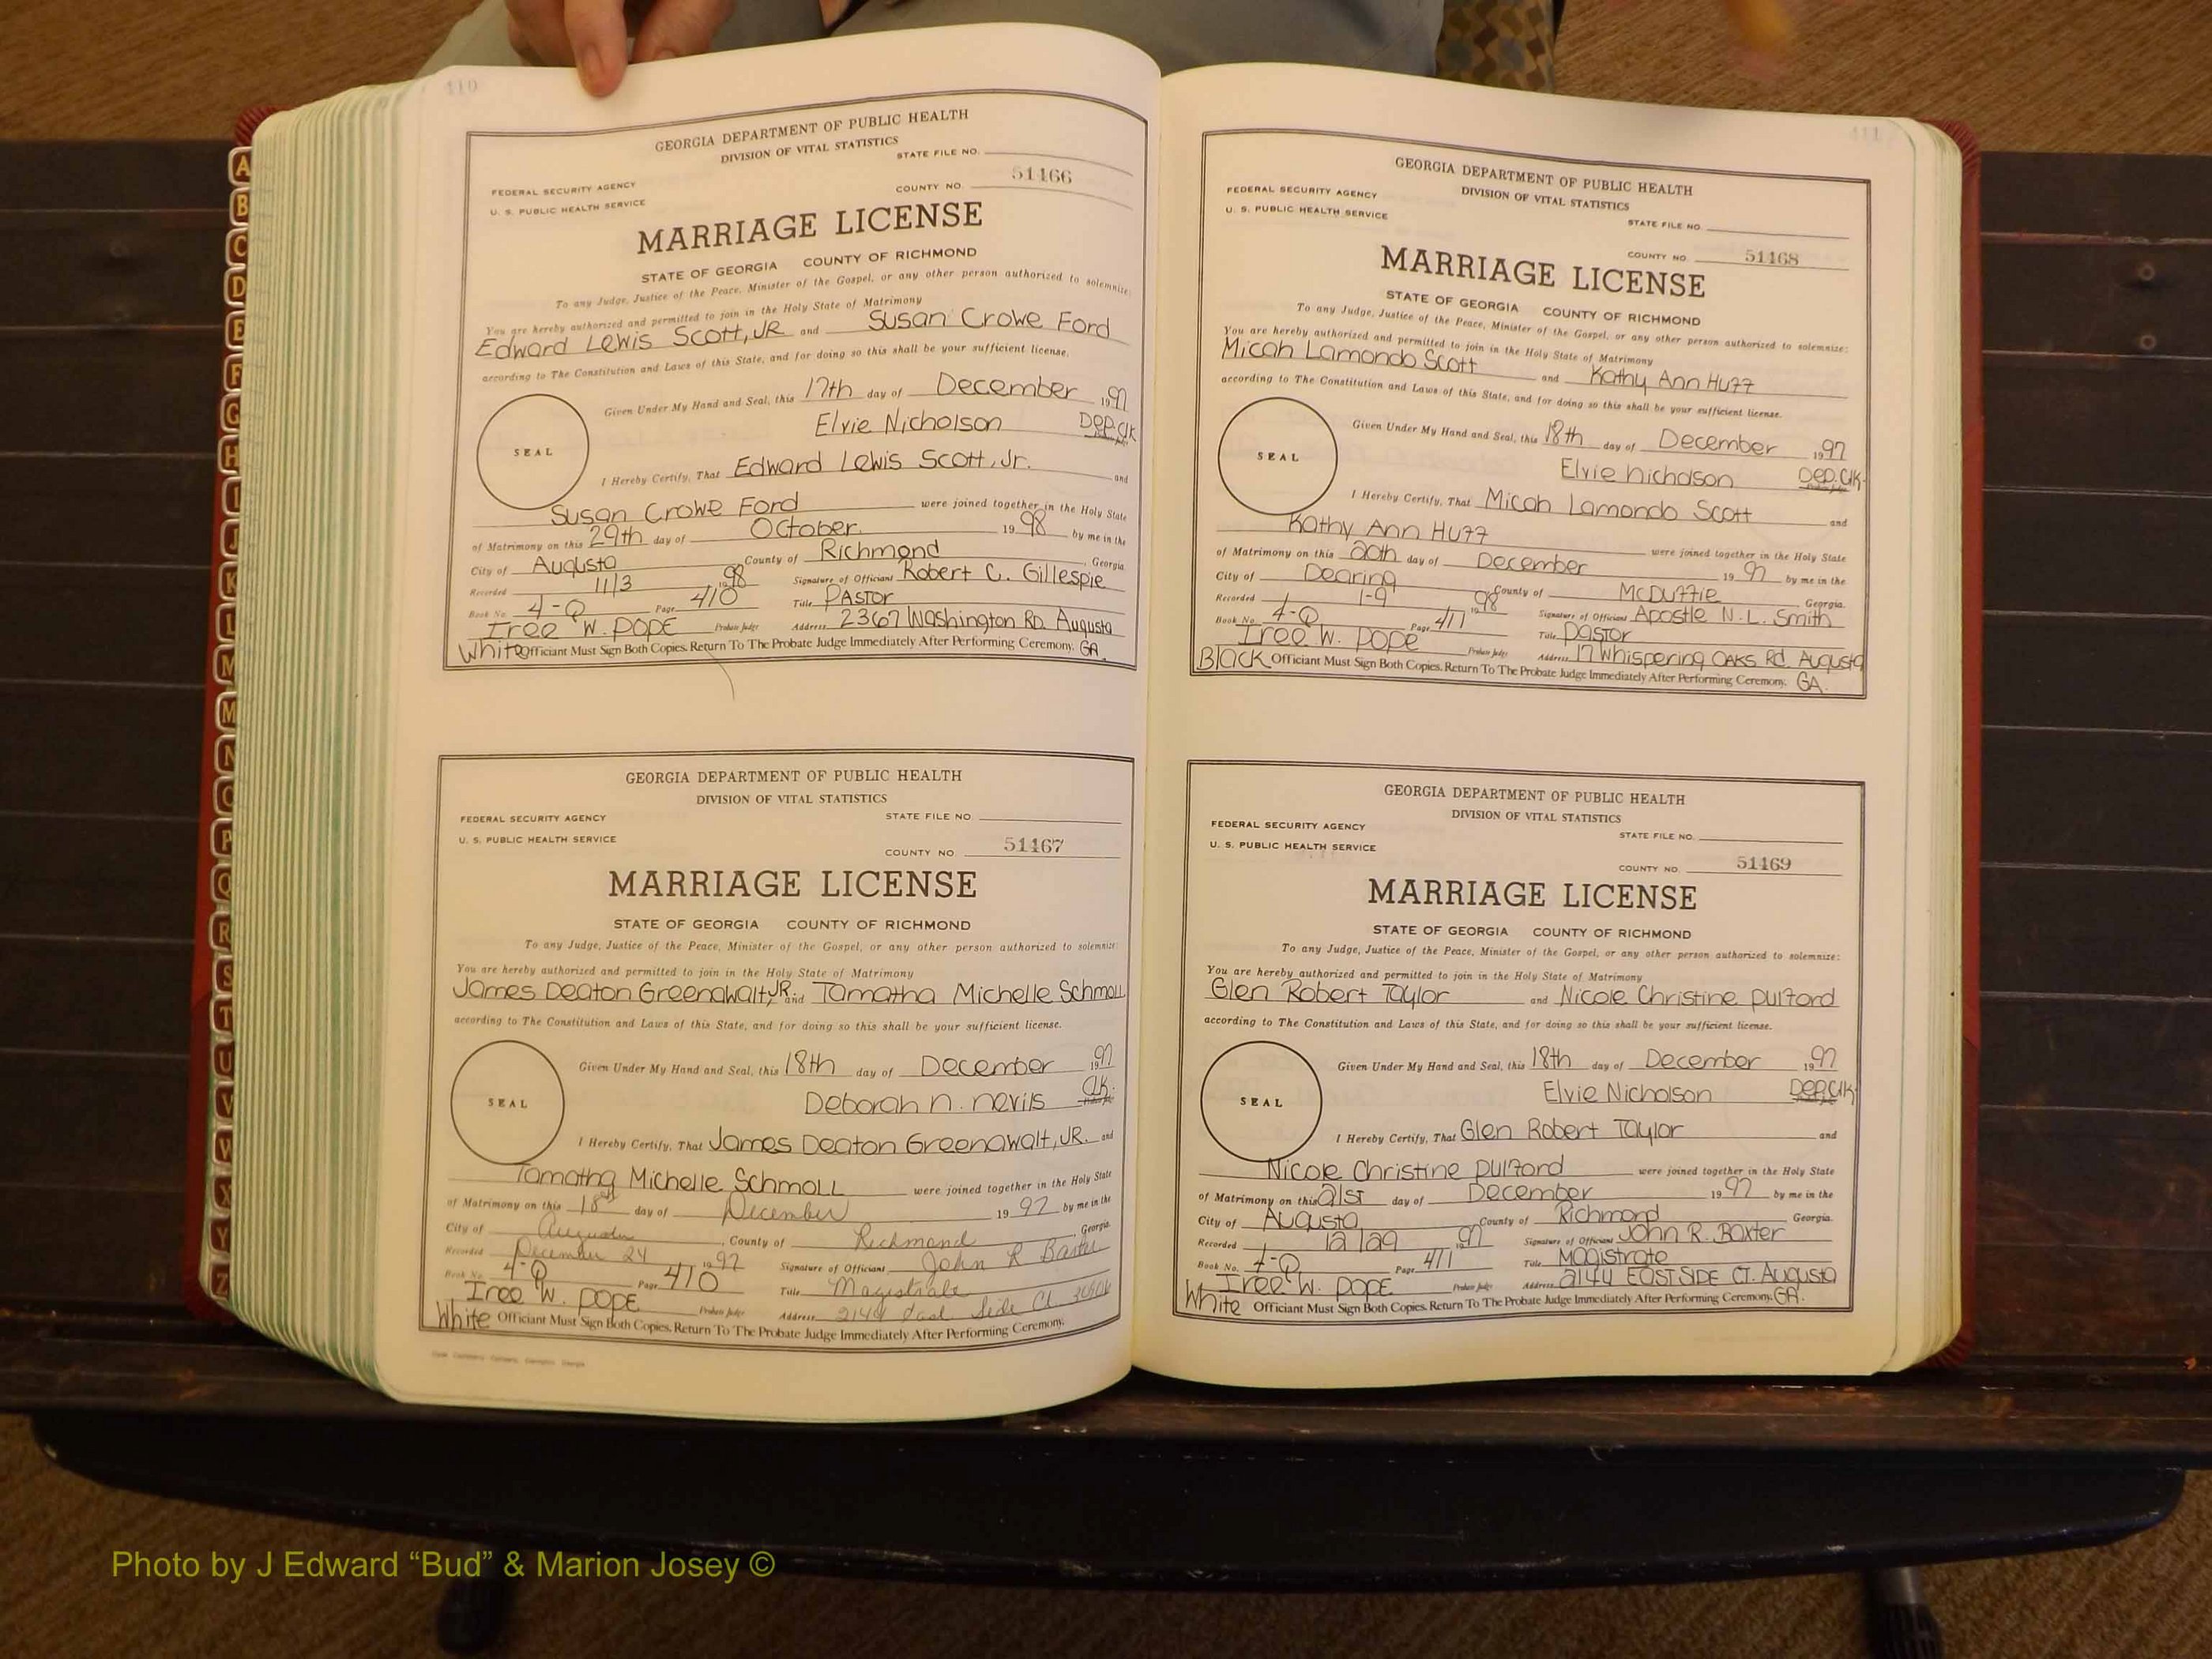 410
GEORGIA DEPARTMENT OF PUBLIC HEALTH
DIVISION OF VITAL STATISTICS
STATE FILE NO.
FEDERAL SECURITY AGENCY
U. S. PUBLIC HEALTH SERVICE
COUNTY NO. 51466
MARRIAGE LICENSE
STATE OF GEORGIA COUNTY OF RICHMOND
To any Judge, Justice of the Peace, Minister of the Gospel, or any other person authorized to solemnize:
You are hereby authorized and permitted to join in the Holy State of Matrimony
Edward Lewis Scott, JR and Susan Crowe Ford
according to The Constitution and Laws of this State, and for doing so this shall be your sufficient license.
Given Under My Hand and Seal, this 17th day of December 1997
Elvie Nicholson Dep. Clk
SEAL
I Hereby Certify, That Edward Lewis Scott, Jr. and
Susan Crowe Ford were joined together in the Holy State
of Matrimony on this 29th day of October 1998 by me in the
City of Augusta County of Richmond Georgia
Recorded 11/3 1998 Signature of Officiant Robert C. Gillespie
Book No. 4-Q Page 410 Title Pastor
Iree W. Pope Probate Judge Address 2367 Washington RD. Augusta
White Officiant Must Sign Both Copies. Return To The Probate Judge Immediately After Performing Ceremony. GA.
GEORGIA DEPARTMENT OF PUBLIC HEALTH
DIVISION OF VITAL STATISTICS
FEDERAL SECURITY AGENCY STATE FILE NO.
U. S. PUBLIC HEALTH SERVICE
COUNTY NO. 51467
MARRIAGE LICENSE
STATE OF GEORGIA COUNTY OF RICHMOND
To any Judge, Justice of the Peace, Minister of the Gospel, or any other person authorized to solemnize:
You are hereby authorized and permitted to join in the Holy State of Matrimony
James Deaton Greenawalt, JR. and Tamatha Michelle Schmoll
according to The Constitution and Laws of this State, and for doing so this shall be your sufficient license.
Given Under My Hand and Seal, this 18th day of December 1997
Deborah N. Nevils Clk.
SEAL
I Hereby Certify, That James Deaton Greenawalt, JR. and
Tamatha Michelle Schmoll were joined together in the Holy State
of Matrimony on this 18th day of December 1997 by me in the
City of Augusta, County of Richmond, Georgia.
Recorded December 24 1997 Signature of Officiant John R Baxter
Book No. 4-Q Page 410 Title Magistrate
Iree W. Pope Probate Judge Address 2144 East Side Ct.
White Officiant Must Sign Both Copies. Return To The Probate Judge Immediately After Performing Ceremony.
411
GEORGIA DEPARTMENT OF PUBLIC HEALTH
DIVISION OF VITAL STATISTICS
FEDERAL SECURITY AGENCY
U. S. PUBLIC HEALTH SERVICE
STATE FILE NO.
COUNTY NO. 51468
MARRIAGE LICENSE
STATE OF GEORGIA COUNTY OF RICHMOND
To any Judge, Justice of the Peace, Minister of the Gospel, or any other person authorized to solemnize:
You are hereby authorized and permitted to join in the Holy State of Matrimony
Micah Lamondo Scott and Kathy Ann Huff
according to The Constitution and Laws of this State, and for doing so this shall be your sufficient license.
Given Under My Hand and Seal, this 18th day of December 1997
Elvie Nicholson Dep. Clk.
SEAL
I Hereby Certify, That Micah Lamondo Scott and
Kathy Ann Huff were joined together in the Holy State
of Matrimony on this 20th day of December 1997 by me in the
City of Dearing County of McDuffie Georgia.
Recorded 1-9 1998 Signature of Officiant Apostle N.L. Smith
Book No. 4-Q Page 411 Title Pastor
Iree W. Pope Probate Judge Address 17 Whispering Oaks Rd. Augusta
Black Officiant Must Sign Both Copies. Return To The Probate Judge Immediately After Performing Ceremony. GA.
GEORGIA DEPARTMENT OF PUBLIC HEALTH
DIVISION OF VITAL STATISTICS
FEDERAL SECURITY AGENCY STATE FILE NO.
U. S. PUBLIC HEALTH SERVICE
COUNTY NO. 51469
MARRIAGE LICENSE
STATE OF GEORGIA COUNTY OF RICHMOND
To any Judge, Justice of the Peace, Minister of the Gospel, or any other person authorized to solemnize:
You are hereby authorized and permitted to join in the Holy State of Matrimony
Glen Robert Taylor and Nicole Christine Pulford
according to The Constitution and Laws of this State, and for doing so this shall be your sufficient license.
Given Under My Hand and Seal, this 18th day of December 1997
Elvie Nicholson Dep Clk
SEAL
I Hereby Certify, That Glen Robert Taylor and
Nicole Christine Pulford were joined together in the Holy State
of Matrimony on this 21st day of December 1997 by me in the
City of Augusta County of Richmond Georgia.
Recorded 12/29 1997 Signature of Officiant John R. Baxter
Book No. 4-Q Page 411 Title Magistrate
Iree W. Pope Probate Judge Address 2144 East Side Ct. Augusta
White Officiant Must Sign Both Copies. Return To The Probate Judge Immediately After Performing Ceremony. GA.
A
B
C
D
E
F
G
H
I
J
K
L
M
M
N
O
P
Q
R
S
T
U
V
W
X
Y
Z
Photo by J Edward “Bud” & Marion Josey ©